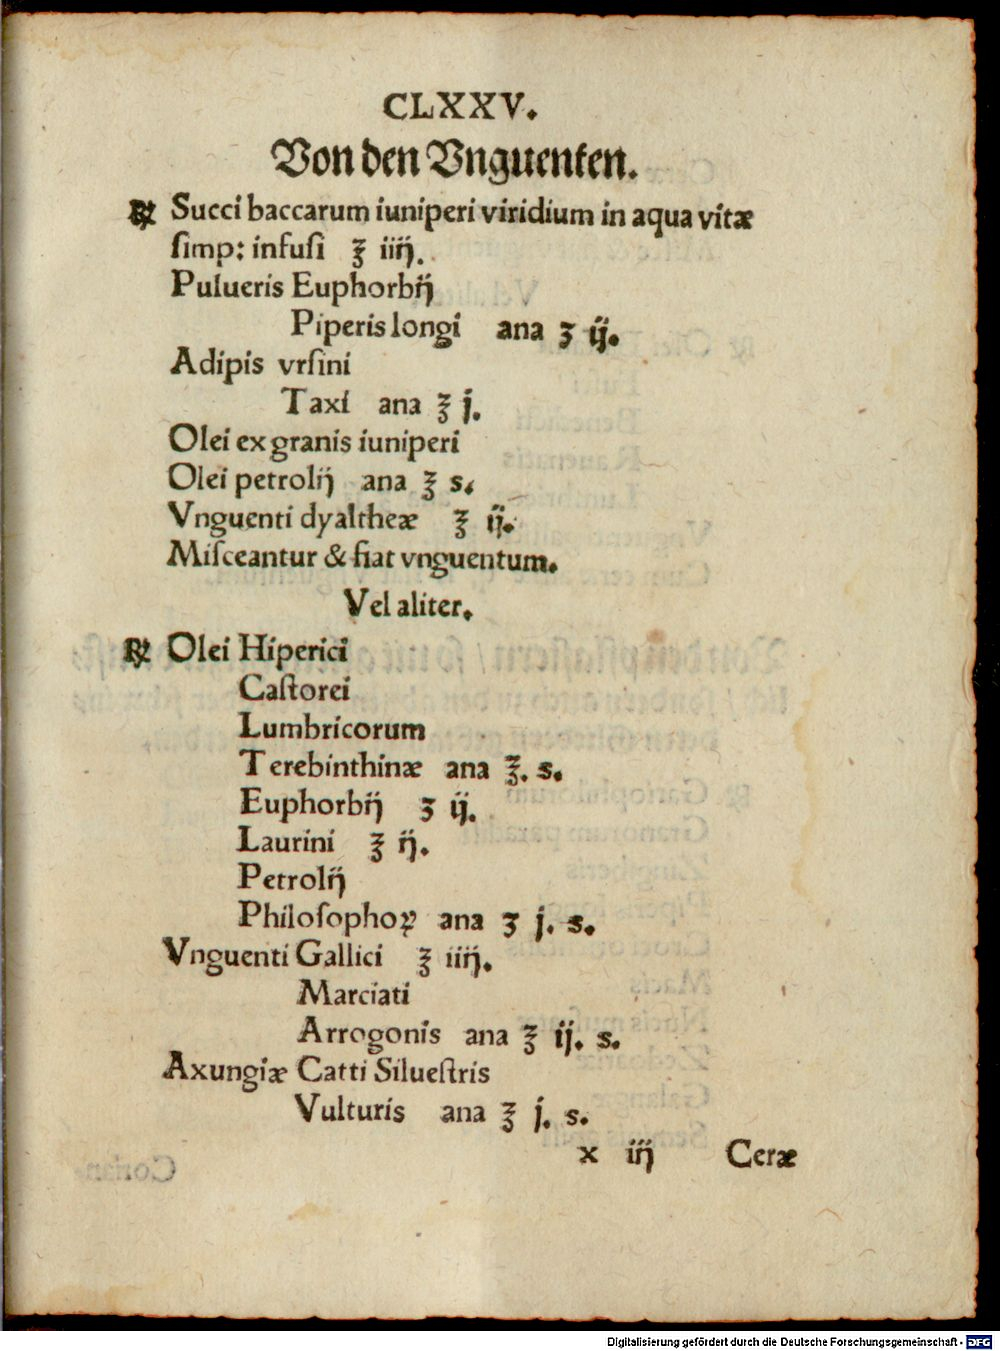 CLXXV.
Von den Vnguenten.
℞ Succi baccarum iuniperi viridium in aqua vitæ
ſimp: infuſi ℥ iiij.
Pulueris Euphorbij
Piperis longi ana ʒ ij.
Adipis vrſini
Taxi ana ℥ j.
Olei ex granis iuniperi
Olei petrolij ana ℥ s.
Vnguenti dyaltheæ ℥ ij.
Miſceantur & fiat vnguentum.
Vel aliter.
℞ Olei Hiperici
Caſtorei
Lumbricorum
Terebinthinæ ana ℥. s.
Euphorbij ʒ ij.
Laurini ℥ ij.
Petrolij
Philoſophoꝝ ana ʒ j. s.
Vnguenti Gallici ℥ iiij.
Marciati
Arrogonis ana ℥ ij. s.
Axungiæ Catti Silueſtris
Vulturis ana ℥ j. s.
x iij Ceræ
Digitalisierung gefördert durch die Deutsche Forschungsgemeinschaft - DFG